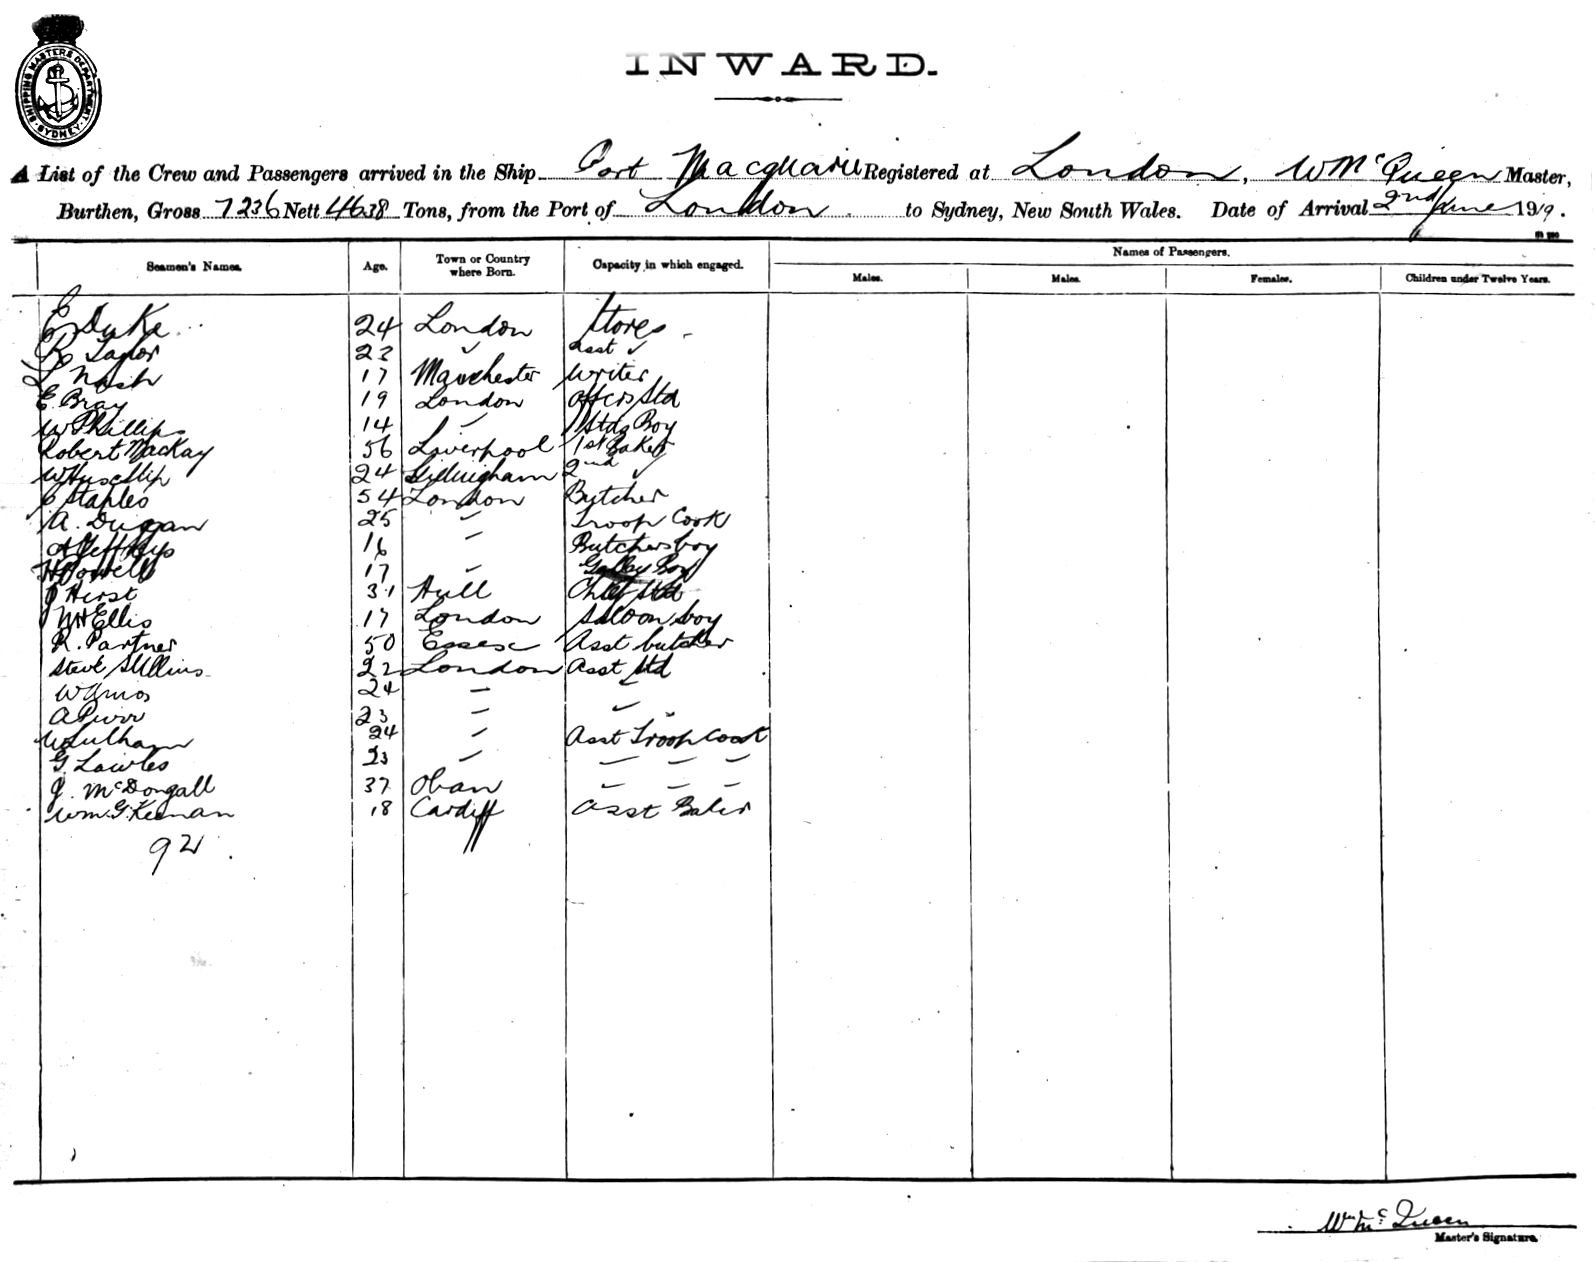 SHIPPING MASTERS DEPARTMENT SYDNEY
INWARD.
A List of the Crew and Passengers arrived in the Ship Port Macquarie Registered at London, W McQueen Master,
Burthen, Gross 7236 Nett 4638 Tons, from the Port of London to Sydney, New South Wales. Date of Arrival 2nd June 1919.
Names of Passengers.
Seamen's Names. Age. Town or Country where Born. Capacity in which engaged. Males. Males. Females. Children under Twelve Years.
E Duke 24 London Stores
R Taylor 23 " Asst "
L Nash 17 Manchester Writer
E Bray 19 London Offcrs Std
W Phillips 14 " Stds Boy
Robert MacKay 56 Liverpool 1st Baker
24 Gillingham 2nd "
C Staples 54 London Butcher
A. Duggan 25 " Troop Cook
A Jeffreys 16 " Butchers boy
H Powell 17 " Galley Boy
J Hirst 31 Hull Chief Std
W H Ellis 17 London Saloon boy
R. Partner 50 Essex Asst butcher
Steve 22 London Asst Std
W Amos 24 " "
A 23 " "
W Lulham 24 " Asst Troop Cook
G. Lawles 23 " " " "
J. McDongall 37 Oban " " "
Wm. G. Keenan 18 Cardiff Asst Baker
92
Wm McQueen
Master's Signature.